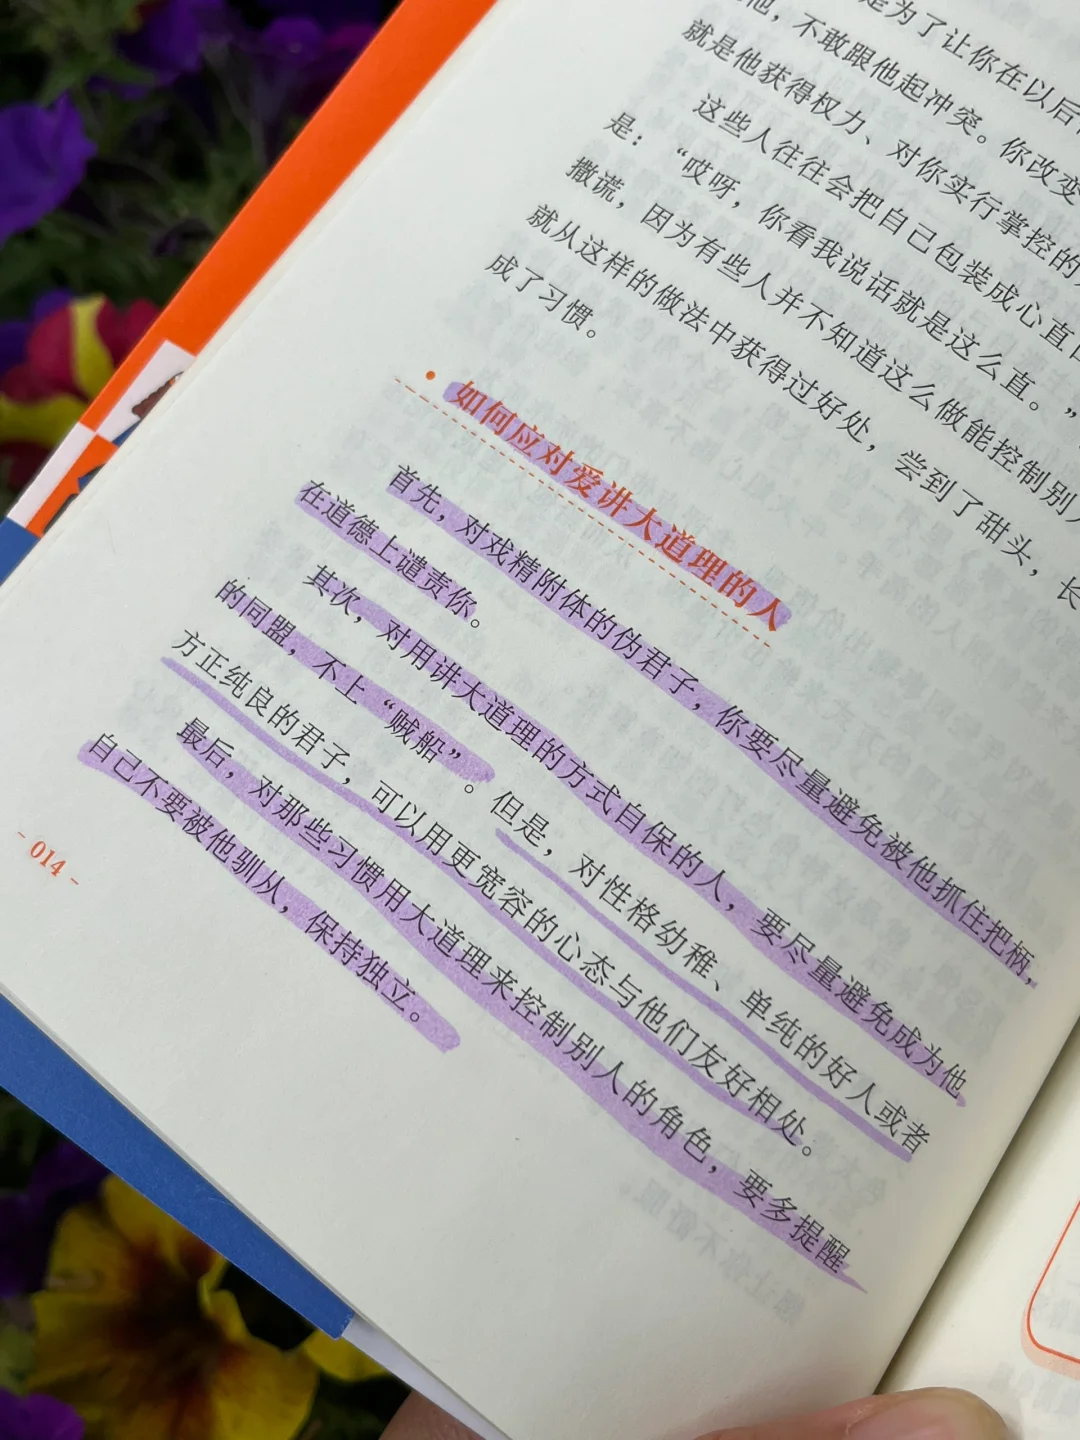 是为了让你在以后
他，不敢跟他起冲突。你改变
就是他获得权力、对你实行掌控的
这些人往往会把自己包装成心直口
是：“哎呀，你看我说话就是这么直。”
撒谎，因为有些人并不知道这么做能控制别人
就从这样的做法中获得过好处，尝到了甜头，长
成了习惯。
• 如何应对爱讲大道理的人
首先，对戏精附体的伪君子，你要尽量避免被他抓住把柄，
在道德上谴责你。
其次，对用讲大道理的方式自保的人，要尽量避免成为他
的同盟，不上“贼船”。但是，对性格幼稚、单纯的好人或者
方正纯良的君子，可以用更宽容的心态与他们友好相处。
最后，对那些习惯用大道理来控制别人的角色，要多提醒
自己不要被他驯从，保持独立。
- 014 -